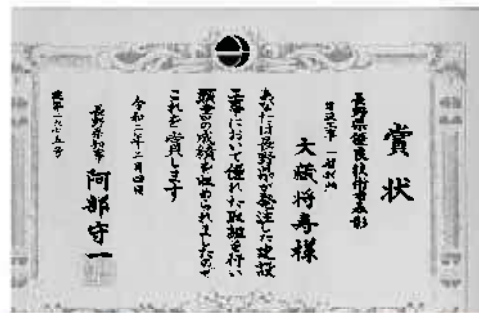 賞状
長野県優良技術者表彰
建設工事
大 将寿 様
あなたは長野県が発注した建設
工事において優れた取組を行い
抜群の成績を収められましたので
これを賞します
令和二年二月四日
長野県知事 阿部守一